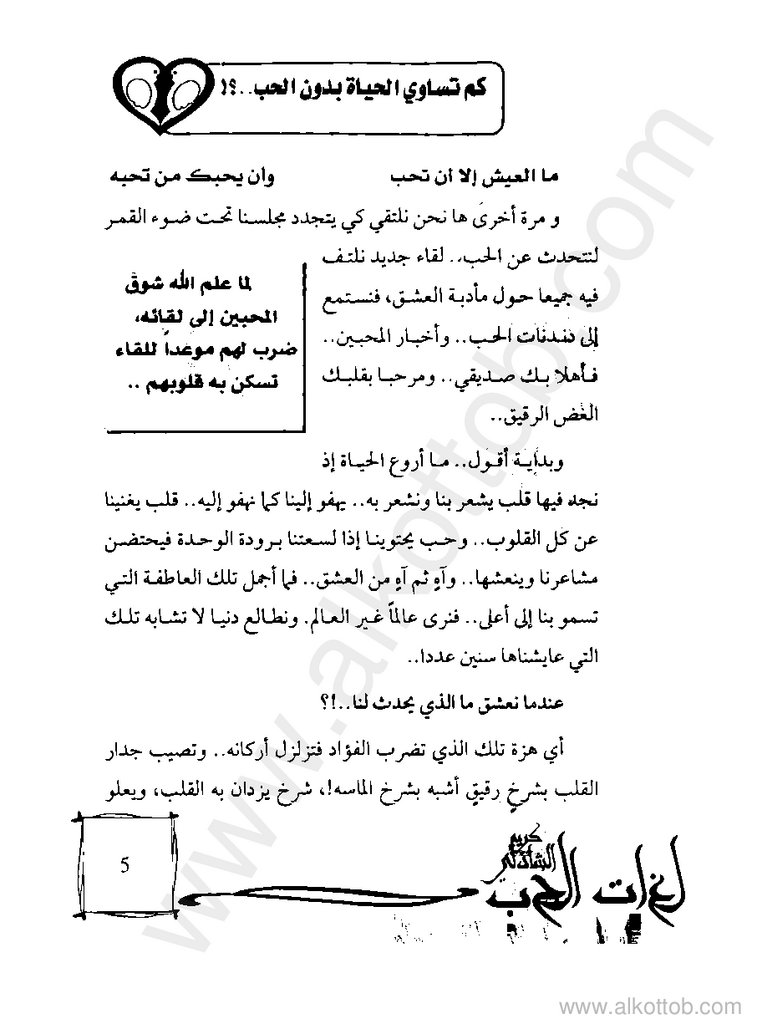 كم تساوي الحياة بدون الحب..؟!
ما العيش إلا أن تحب وأن يحبك من تحبه
و مرة أخرى ها نحن نلتقي كي يتجدد مجلسنا تحت ضوء القمر
لنتحدث عن الحب.. لقاء جديد نلتف
فيه جميعا حول مأدبة العشق، فنستمع
إلى دندنات الحب.. وأخبار المحبين..
فأهلا بك صديقي.. ومرحبا بقلبك
الغض الرقيق..
لما علم الله شوق
المحبين إلى لقائه،
ضرب لهم موعداً للقاء
تسكن به قلوبهم ..
وبداية أقول.. ما أروع الحياة إذ
نجد فيها قلب يشعر بنا ونشعر به.. يهفو إلينا كما نهفو إليه.. قلب يغنينا
عن كل القلوب.. وحب يحتوينا إذا لسعتنا برودة الوحدة فيحتضن
مشاعرنا وينعشها.. وآهٍ ثم آهٍ من العشق.. فما أجمل تلك العاطفة التي
تسمو بنا إلى أعلى.. فنرى عالماً غير العالم. ونطالع دنيا لا تشابه تلك
التي عايشناها سنين عددا..
عندما نعشق ما الذي يحدث لنا..!؟
أي هزة تلك الذي تضرب الفؤاد فتزلزل أركانه.. وتصيب جدار
القلب بشرخٍ رقيقٍ أشبه بشرخ الماسه!، شرخ يزدان به القلب، ويعلو
كريم
الشاذلي
لغات الحب
5
www.alkottob.com
www.alkottob.com